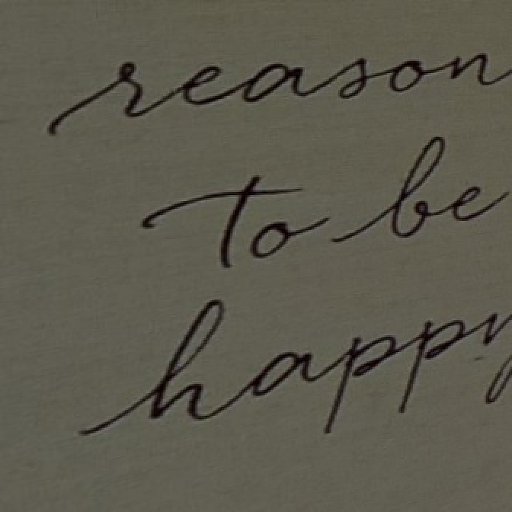 reason
to be
happy